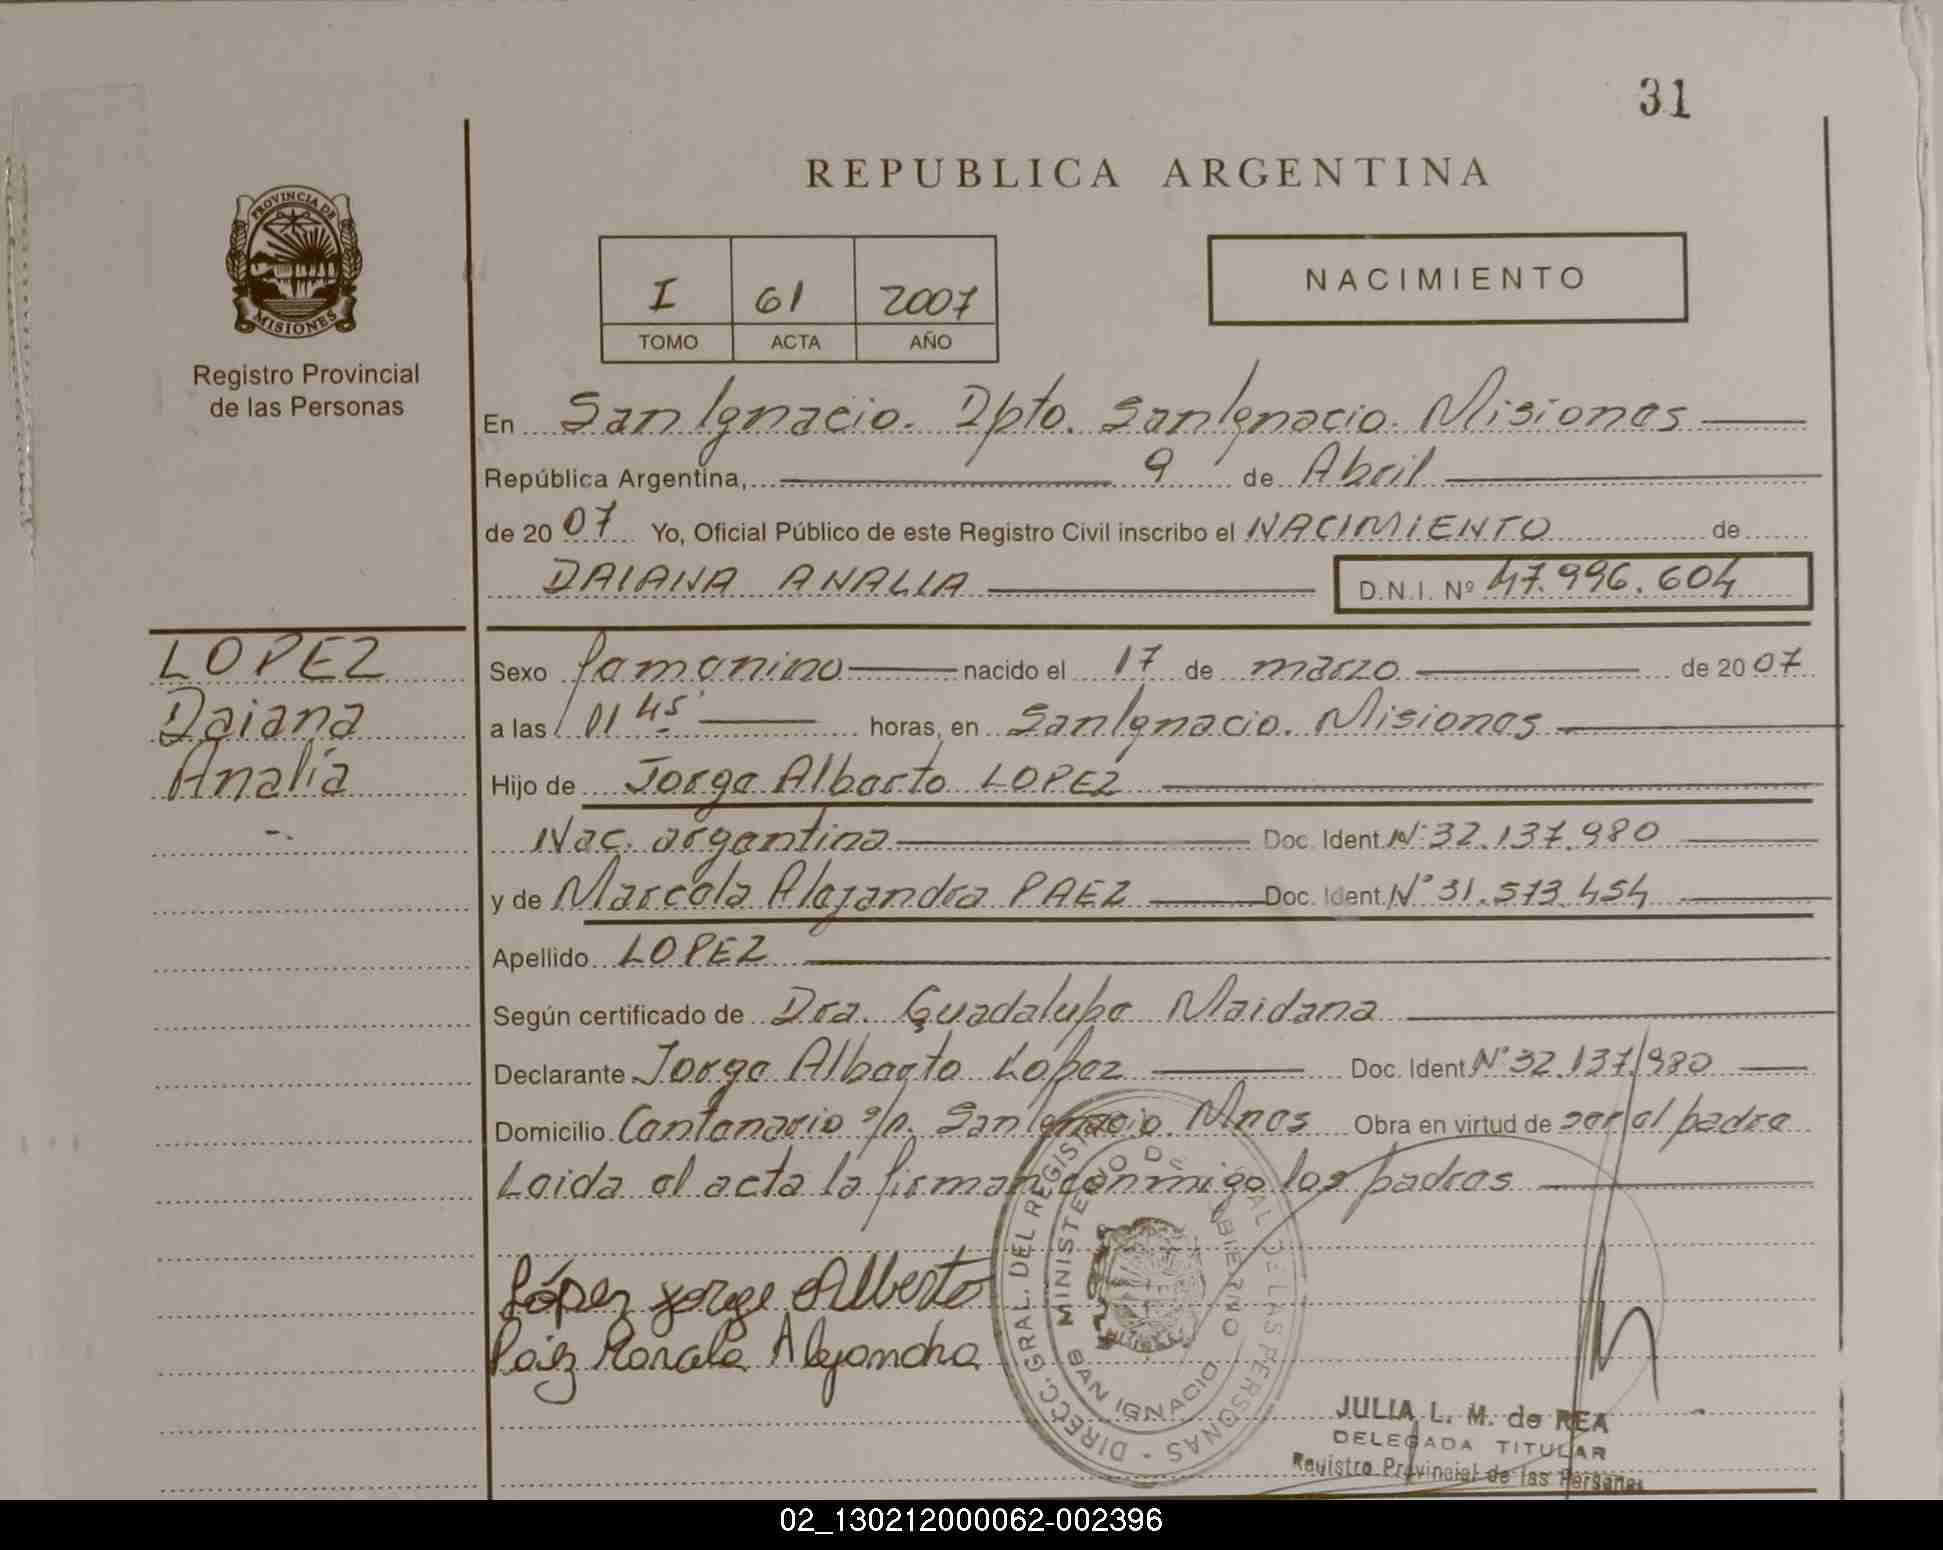 31
REPUBLICA ARGENTINA
PROVINCIA DE
MISIONES
Registro Provincial
de las Personas
I 61 2007
TOMO ACTA AÑO
NACIMIENTO
En San Ignacio. Dpto. San Ignacio. Misiones
República Argentina, 9 de Abril
de 2007 Yo, Oficial Público de este Registro Civil inscribo el NACIMIENTO de
DAIANA ANALIA D.N.I. Nº 47.996.604
LOPEZ
Daiana
Analía
Sexo femenino nacido el 17 de marzo de 2007
a las 01 45 horas, en San Ignacio. Misiones
Hijo de Jorge Alberto LOPEZ
Nac. argentina Doc. Ident. Nº 32.137.980
y de Marcela Alejandra PAEZ Doc. Ident. Nº 31.573.454
Apellido LOPEZ
Según certificado de Dra. Guadalupe Maidana
Declarante Jorge Alberto Lopez Doc. Ident Nº 32.137.980
Domicilio Centenario s/n. San Ignacio. Mnes Obra en virtud de ser el padre
Leida el acta la firman conmigo los padres
López Jorge Alberto
Alejandra
DIRECC. GRAL. DEL REGISTRO PROVINCIAL DE LAS PERSONAS
MINISTERIO DE GOBIERNO
SAN IGNACIO
MISIONES
JULIA L. M. de REA
DELEGADA TITULAR
Registro Provincial de las Personas
02_130212000062-002396